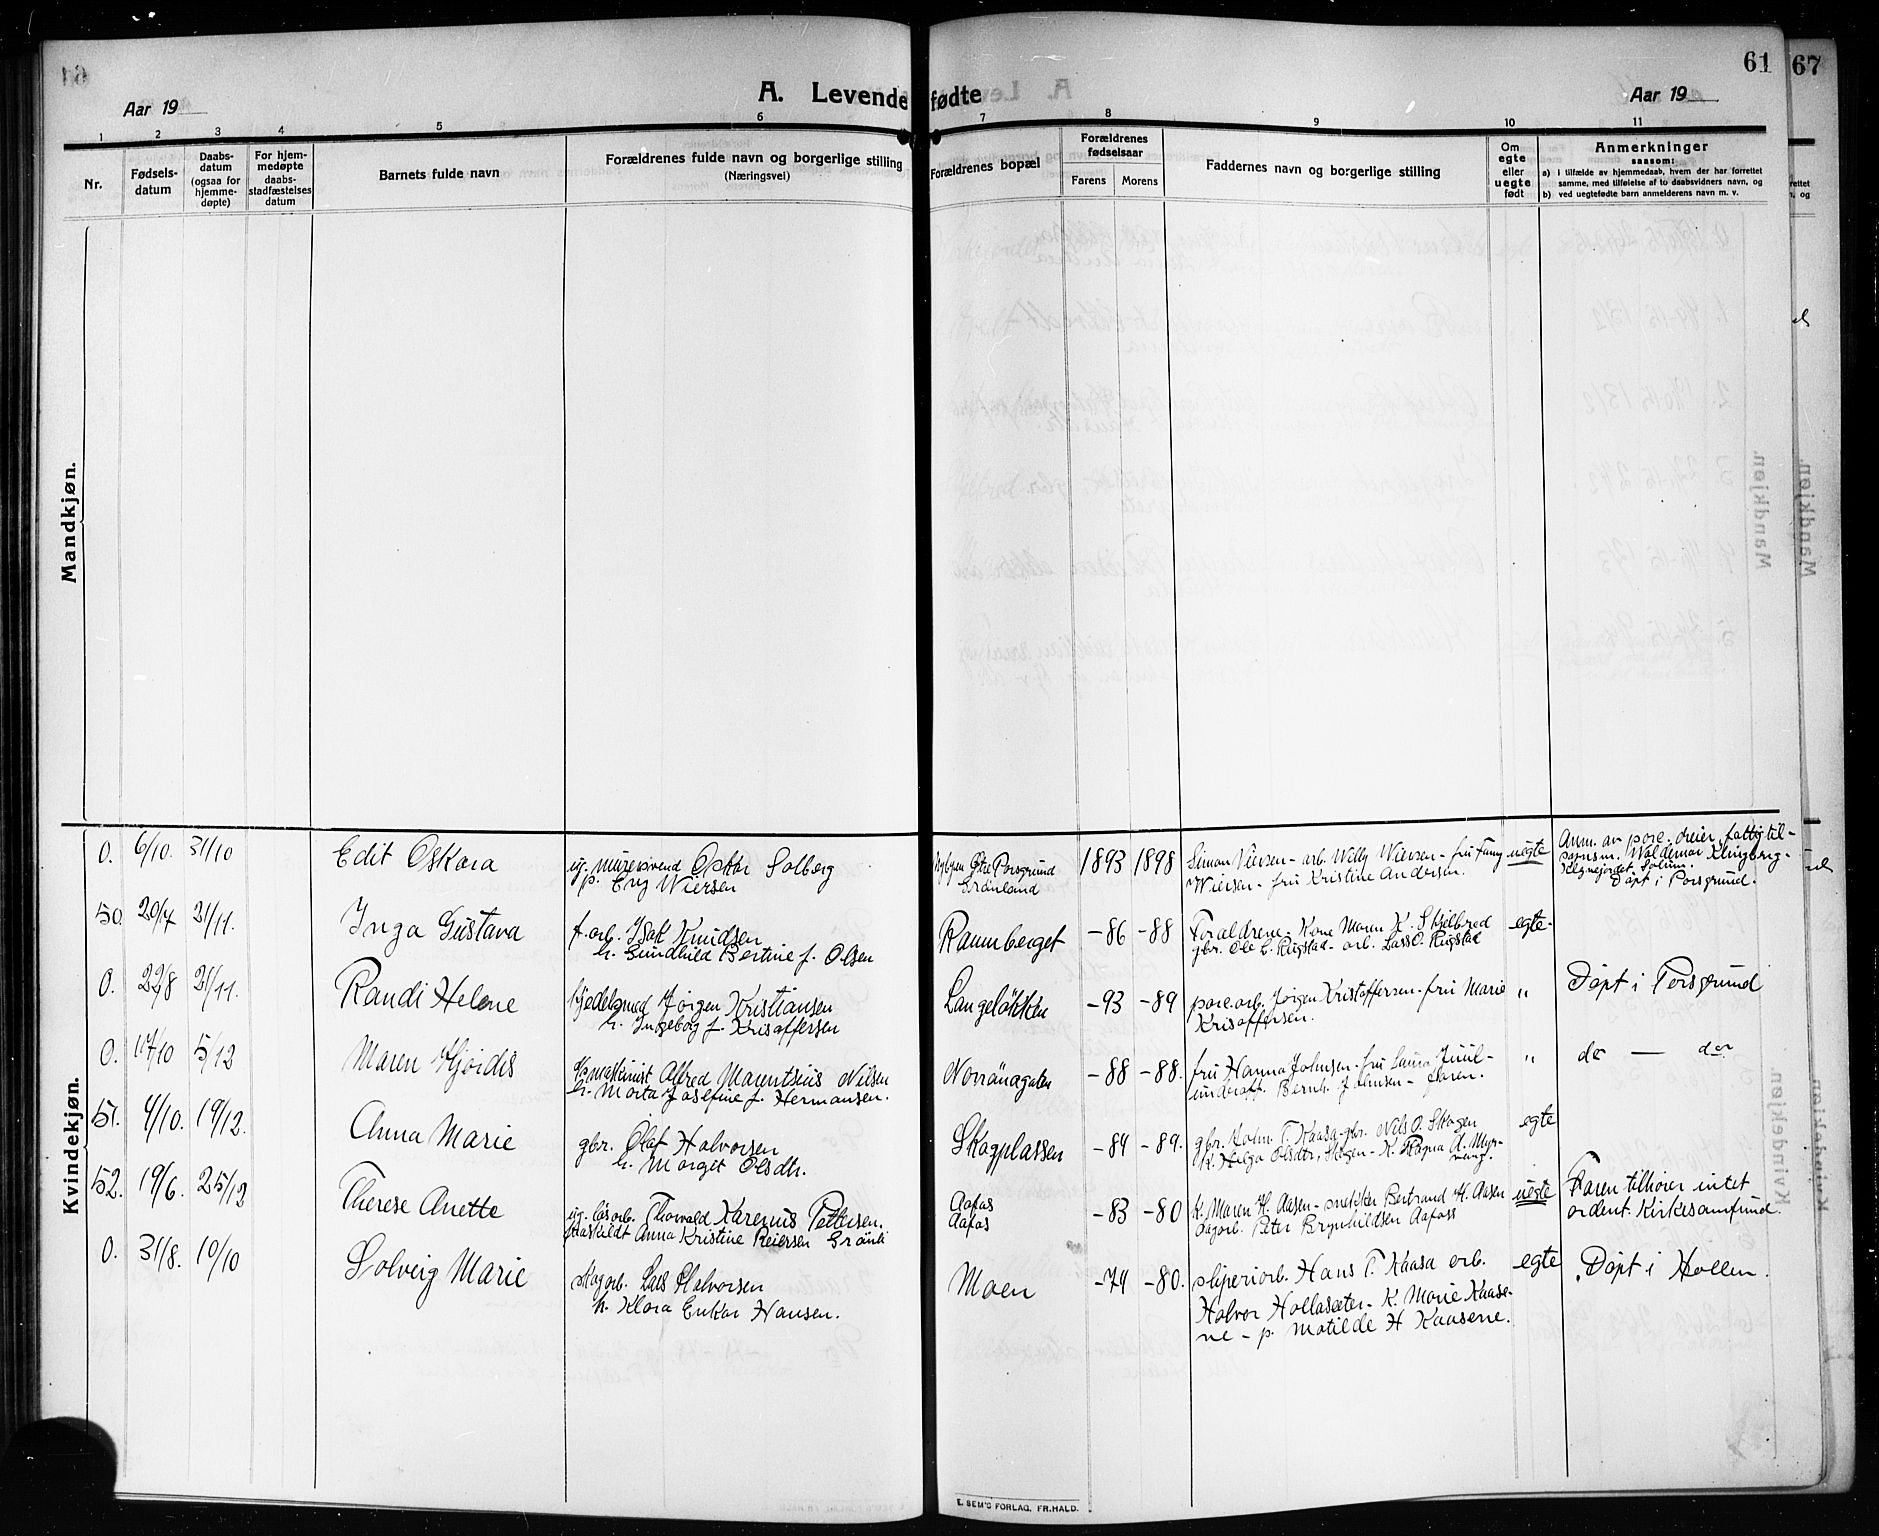 61
67
Aar 19
A. Levendefødte
Aar 19
1 2 3 4 5 6 7 8 9 10 11
Nr.
Fødsels-
datum
Daabs-
datum
(ogsaa for
hjemme-
døpte)
For hjem-
medøpte
daabs-
stadfæstelses
datum
Barnets fulde navn
Forældrenes fulde navn og borgerlige stilling
(Næringsvei)
Forældrenes bopæl
Forældrenes
fødselsaar
Farens
Morens
Faddernes navn og borgerlige stilling
Om
egte
eller
uegte
født
Anmerkninger
saasom:
a) i tilfælde av hjemmedaab, hvem der har forrettet
samme, med tilføielse af to daabsvidners navn, og
b) ved uegtefødte barn anmelderens navn m. v.
Mandkjøn.
Kvindekjøn.
0. 6/10. 31/10
Edit Oskara
ug. muresvend Oskar Solberg
p. Eng Wiersen
Nybyen Østre Porsgrund
Grønland
1893 1898
Simon Viersen - arb. Willy Wiersen - fru Fanny
Wiersen - fru Kristine Andersen.
uegte
Anm. av porc. dreier, fattigtil-
synsm. Waldemar Klingberg -
Klevejordet. Solum.
Døpt i Porsgrund.
50. 20/7 21/11.
Inga Gustava
f. arb. Isak Knudsen
h. Gundhild Bertine f. Olsen
Raunberget
-86 -88
Forældrene - Kone Maren K. Skjelbred
gbr. Ole L. Rugstad - arb. Lars O. Rugstad
egte-
0. 22/8 21/11.
Randi Helene
kjedelsmed Jørgen Kristiansen
h. Ingeborg f. Krisoffersen
Langeløkken
-93 -89
porc. arb. Jørgen Kristoffersen - fru Marie
Krisoffersen.
"
Døpt i Porsgrund
0. 17/10 5/12
Maren Hjørdis
Alfred Marentsius Nilsen
h. Marta Josefine f. Hermansen.
Norrönagaten
-88 -88.
fru Hanna Johnsen - fru Laura Juul -
Bernh. Johnsen - faren.
"
do — do
51. 4/10. 19/12.
Anna Marie
gbr. Olaf Halvorsen
h. Marget Olsdtr.
Skogplassen
-84 -89.
gbr. John T. Kaasa - gbr. Nils O. Skogen
K. Helga Olsdtr. Skogen - K. Ragna A. Myr-
vang.
egte
52. 19/6. 25/12
Therese Anette
ug. løsarb. Thorvald Karenius Pettersen.
fraskildt Anna Kristine Reiersen Grønli
Aafas
Aafos
-83 -80
K. Maren H. Aasen - snekker Bertrand H. Aasen
dagarb. Peter Brynhildsen Aafoss
uegte
Faren tilhører intet
ordent. Kirkesamfund.
0. 31/8. 10/10
Solveig Marie
skogarb. Lars Halvorsen
h. Klara Enkar Hansen.
Moen
-74 -80.
sliperiarb. Hans T. Kaasa arb.
Halvor Hollasæter - K. Marie Kaase-
ne - p. Matilde H Kaasene.
egte
Døpt i Hollen.
E. SEM'S FORLAG, FR.HALD.